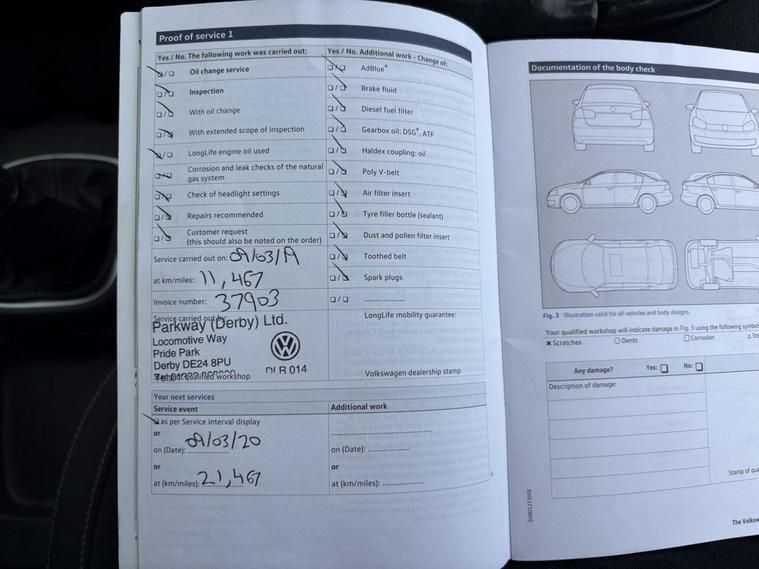 Proof of service 1
Yes / No. The following work was carried out:
Yes / No. Additional work - Change of:
☐/☐ Oil change service
☐/☐ AdBlue®
☐/☐ Inspection
☐/☐ Brake fluid
☐/☐ With oil change
☐/☐ Diesel fuel filter
☐/☐ With extended scope of inspection
☐/☐ Gearbox oil: DSG®, ATF
☐/☐ LongLife engine oil used
☐/☐ Haldex coupling: oil
Corrosion and leak checks of the natural
☐/☐ gas system
☐/☐ Poly V-belt
☐/☐ Check of headlight settings
☐/☐ Air filter insert
☐/☐ Repairs recommended
☐/☐ Tyre filler bottle (sealant)
☐/☐ Customer request
(this should also be noted on the order)
☐/☐ Dust and pollen filter insert
Service carried out on: 09/03/19
☐/☐ Toothed belt
at km/miles: 11,467
☐/☐ Spark plugs
Invoice number: 37903
☐/☐ ....................
Service carried out by:
Parkway (Derby) Ltd.
Locomotive Way
Pride Park
Derby DE24 8PU
DLR 014
qualified workshop
LongLife mobility guarantee:
Volkswagen dealership stamp
Your next services
Service event
Additional work
☐ as per Service interval display
or
on (Date): 09/03/20
or
at (km/miles): 21,467
....................
on (Date): ....................
or
at (km/miles): ....................
Documentation of the body check
Fig. 3 Illustration valid for all vehicles and body designs.
Your qualified workshop will indicate damage in Fig. 3 using the following symbol
× Scratches
○ Dents
☐ Corrosion
Any damage?
Yes: ☐
No: ☐
Description of damage:
Stamp of qua
The Volksw